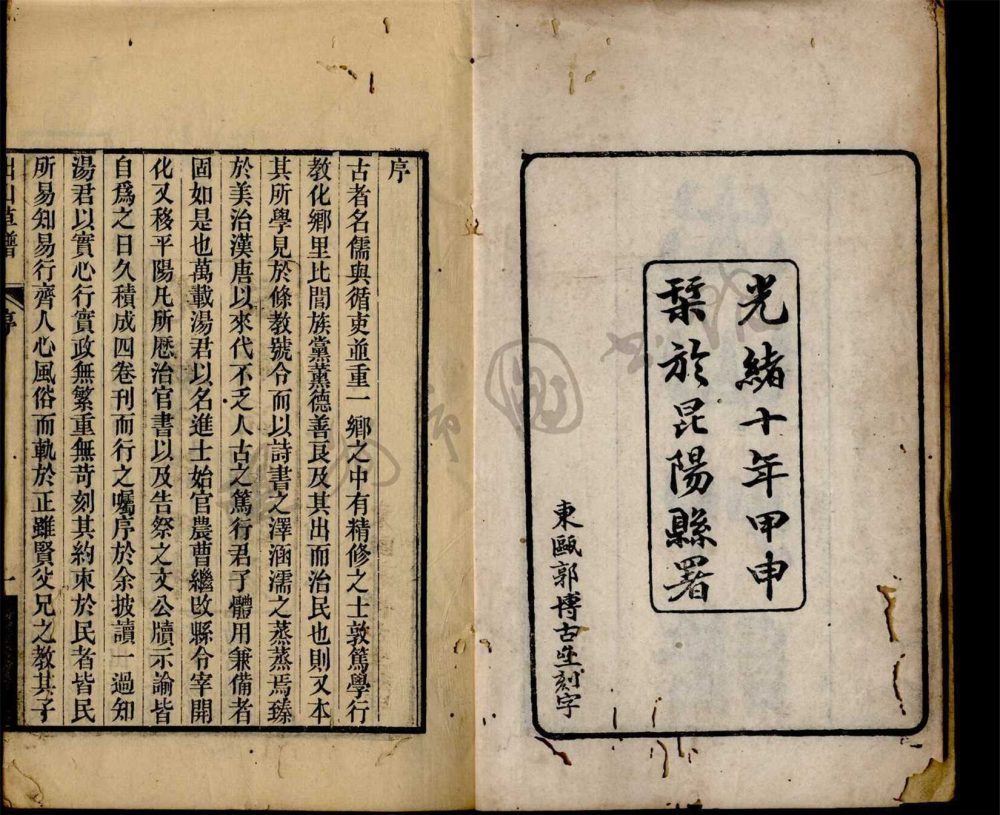 光緒十年甲申
栞於昆陽縣署
東甌郭博古坐刻字
序
古者名儒與循吏並重一鄉之中有精修之士敦篤學行
教化鄉里比閭族黨薰德善良及其出而治民也則又本
其所學見於條教號令而以詩書之澤涵濡之蒸蒸焉臻
於美治漢唐以來代不乏人古之篤行君子體用兼備者
固如是也萬載湯君以名進士始官農曹繼改縣令宰開
化又移平陽凡所厯治官書以及告祭之文公牘示諭皆
自爲之日久積成四卷刊而行之囑序於余披讀一過知
湯君以實心行實政無繁重無苛刻其約束於民者皆民
所易知易行齊人心風俗而軌於正雖賢父兄之教其子
序
一